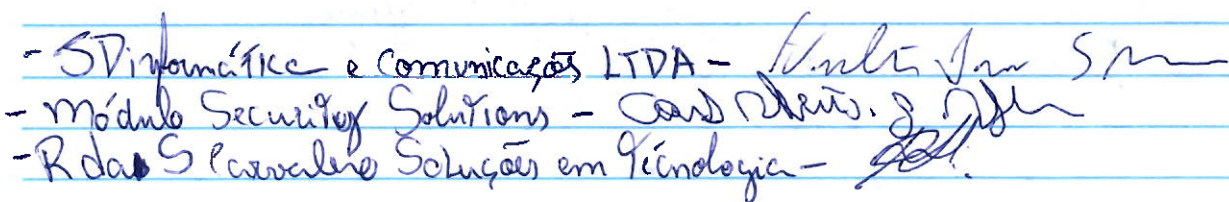 - SDinformática e comunicações LTDA -
- Módulo Security Solutions -
- R da S Carvalho Soluções em Técnologia -